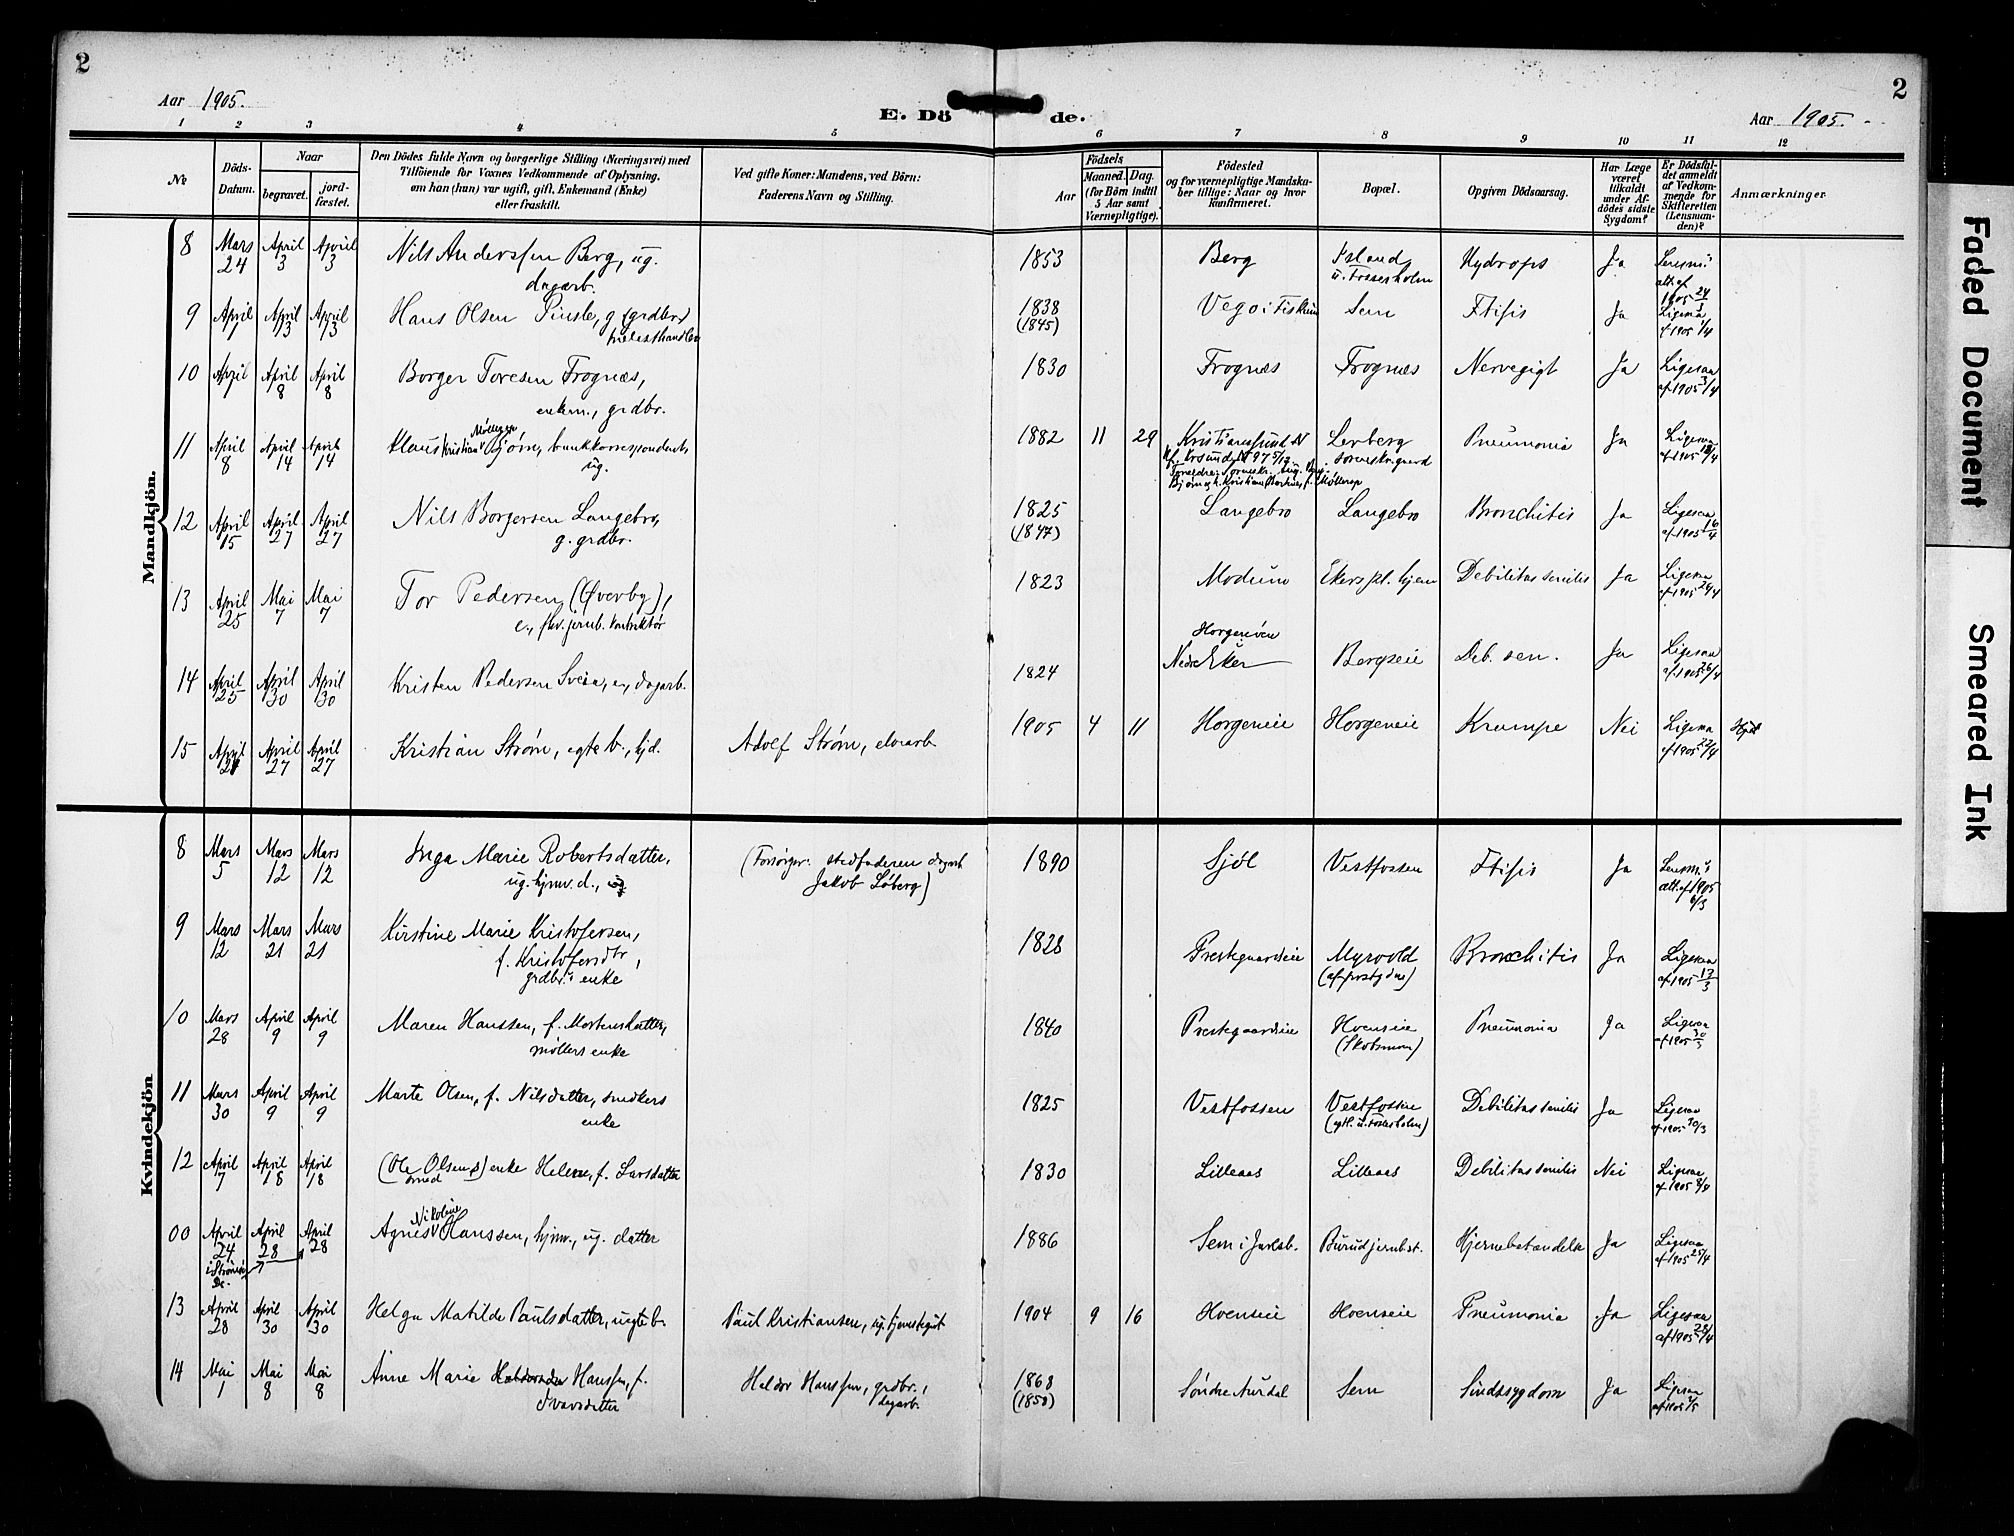 2
2
Aar 1905.
E. Dö de.
Aar 1905.
1 2 3 4 5 6 7 8 9 10 11 12
No
Döds-Datum.
Naar
begravet.
jord-fæstet.
Den Dödes fulde Navn og borgerlige Stilling (Næringsvei) med
Tilföiende for Voxnes Vedkommende af Oplysning,
om han (hun) var ugift, gift, Enkemand (Enke)
eller fraskilt.
Ved gifte Koner: Mandens, ved Börn:
Faderens Navn og Stilling.
Födsels
Aar
Maaned. Dag.
(for Börn indtil
5 Aar samt
Værnepligtige).
Födested
og for værnepligtige Mandska-
ber tillige: Naar og hvor
konfirmeret.
Bopæl.
Opgiven Dödsaarsag.
Har Læge
været
tilkaldt
under Af-
dödes sidste
Sygdom?
Er Dödsfal-
det anmeldt
af Vedkom-
mende for
Skifteretten
(Lensman-
den)?
Anmærkninger
Mandkjön.
8 Mars 24 April 3 April 3 Nils Anderssen Berg, ug. dagarb. 1853 Berg u. Fossesholm Hydrops Ja 1905 24/3
9 April 1 April 13 April 13 Hans Olsen g. (grdbr.) 1838 (1845) Vego i Fiskum Sem Ftisis Ja Ligesaa af 1905 1/4
10 April April 8 April 8 Borger Toresen Frognæs, enkem., grdbr. 1830 Frognæs Frognæs Nervegigt Ja Ligesaa af 1905 3/4
11 April 8 April 14 April 14 Klaus Kristian Møllerop Bjørn, bankkorrespondent, ug. 1882 11 29 Kristianssund N Lerberg sorenskr.gaard Pneumonia Ja Ligesaa
12 April 15 April 27 April 27 Nils Borgersen Langebro, g. grdbr. 1825 (1847) Langebro Langebro Bronchitis Ja Ligesaa af 1905 16/4
13 April 25 Mai 7 Mai 7 Tor Pedersen (Øverby), e., fhv. jernb. kontraktør 1823 Modum Ekers pl. hjem Debilitas senilis Ja Ligesaa af 1905 26/4
14 April 25 April 30 April 30 Kristen Pedersen e., dagarb. 1824 Horgeneien Nedre Eker Bergseie Deb. sen. Ja Ligesaa af 1905 26/4
15 April 21 April 27 April 27 Kristian Strøm, egte b., hjd. Adolf Strøm, elvearb. 1905 4 11 Horgeneie Horgeneie Krampe Nei Ligesaa af 1905 22/4
Kvindekjön
8 Mars 5 Mars 12 Mars 12 Inga Marie Robertsdatter, ug. hjmv. d., (Forsørger: stedfaderen dagarb. Jakob Løberg) 1890 Sjøl Vestfossen Ftisis Ja af 1905 6/3
9 Mars 12 Mars 21 Mars 21 Kirstine Marie Kristofersen, f. Kristofersdtr, grdbr.s enke 1828 Prestegaardseie Myrvold Bronchitis Ja Ligesaa af 1905 13/3
10 Mars 28 April 9 April 9 Maren Hanssen, f. Mortensdatter, møllers enke 1840 Prestegaardseie Hoenseie (Skotsmoen) Pneumonia Ja Ligesaa af 1905 30/3
11 Mars 30 April 9 April 9 Marte Olsen, f. Nilsdatter, snedkers enke 1825 Vestfossen Vestfossen (egtl. u. Fossesholm) Debilitas senilis Ja Ligesaa af 1905 30/3
12 April 7 April 18 April 18 (Ole Olsens) smed enke Helene, f. Larsdatter 1830 Lilleaas Lilleaas Debilitas senilis Nei Ligesaa af 1905 8/4
00 April 24 April 28 April 28 Agnes Nikoline Hanssen, hjmv., ug. datter 1886 Sem i Jarlsb. Burud jernb.st. Hjernebetændelse Ja Ligesaa af 1905 25/4
13 April 28 April 30 April 30 Helga Matilde Paulsdatter, uegte b. Paul Kristiansen, ug. tjenestegut 1904 9 16 Hoenseie Hoenseie Pneumonia Ja Ligesaa af 1905 28/4
14 Mai 1 Mai 8 Mai 8 Anne Marie Hanssen, f. Ivarsdatter Heldor Hanssen, grdbr., dagarb. 1868 (1858) Søndre Aurdal Sem Sindssygdom Ja Ligesaa af 1905 1/5
Faded Document
Smeared Ink